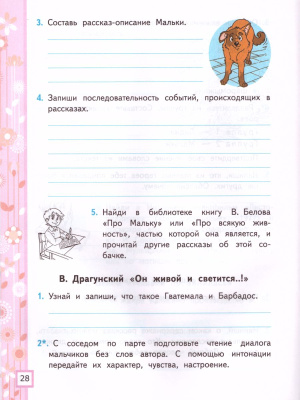 3. Составь рассказ-описание Мальки.
4. Запиши последовательность событий, происходящих в
рассказах.
5. Найди в библиотеке книгу В. Белова
«Про Мальку» или «Про всякую жив-
ность», частью которой она является, и
прочитай другие рассказы об этой со-
бачке.
В. Драгунский «Он живой и светится..!»
1. Узнай и запиши, что такое Гватемала и Барбадос.
2*. С соседом по парте подготовьте чтение диалога
мальчиков без слов автора. С помощью интонации
передайте их характер, чувства, настроение.
28